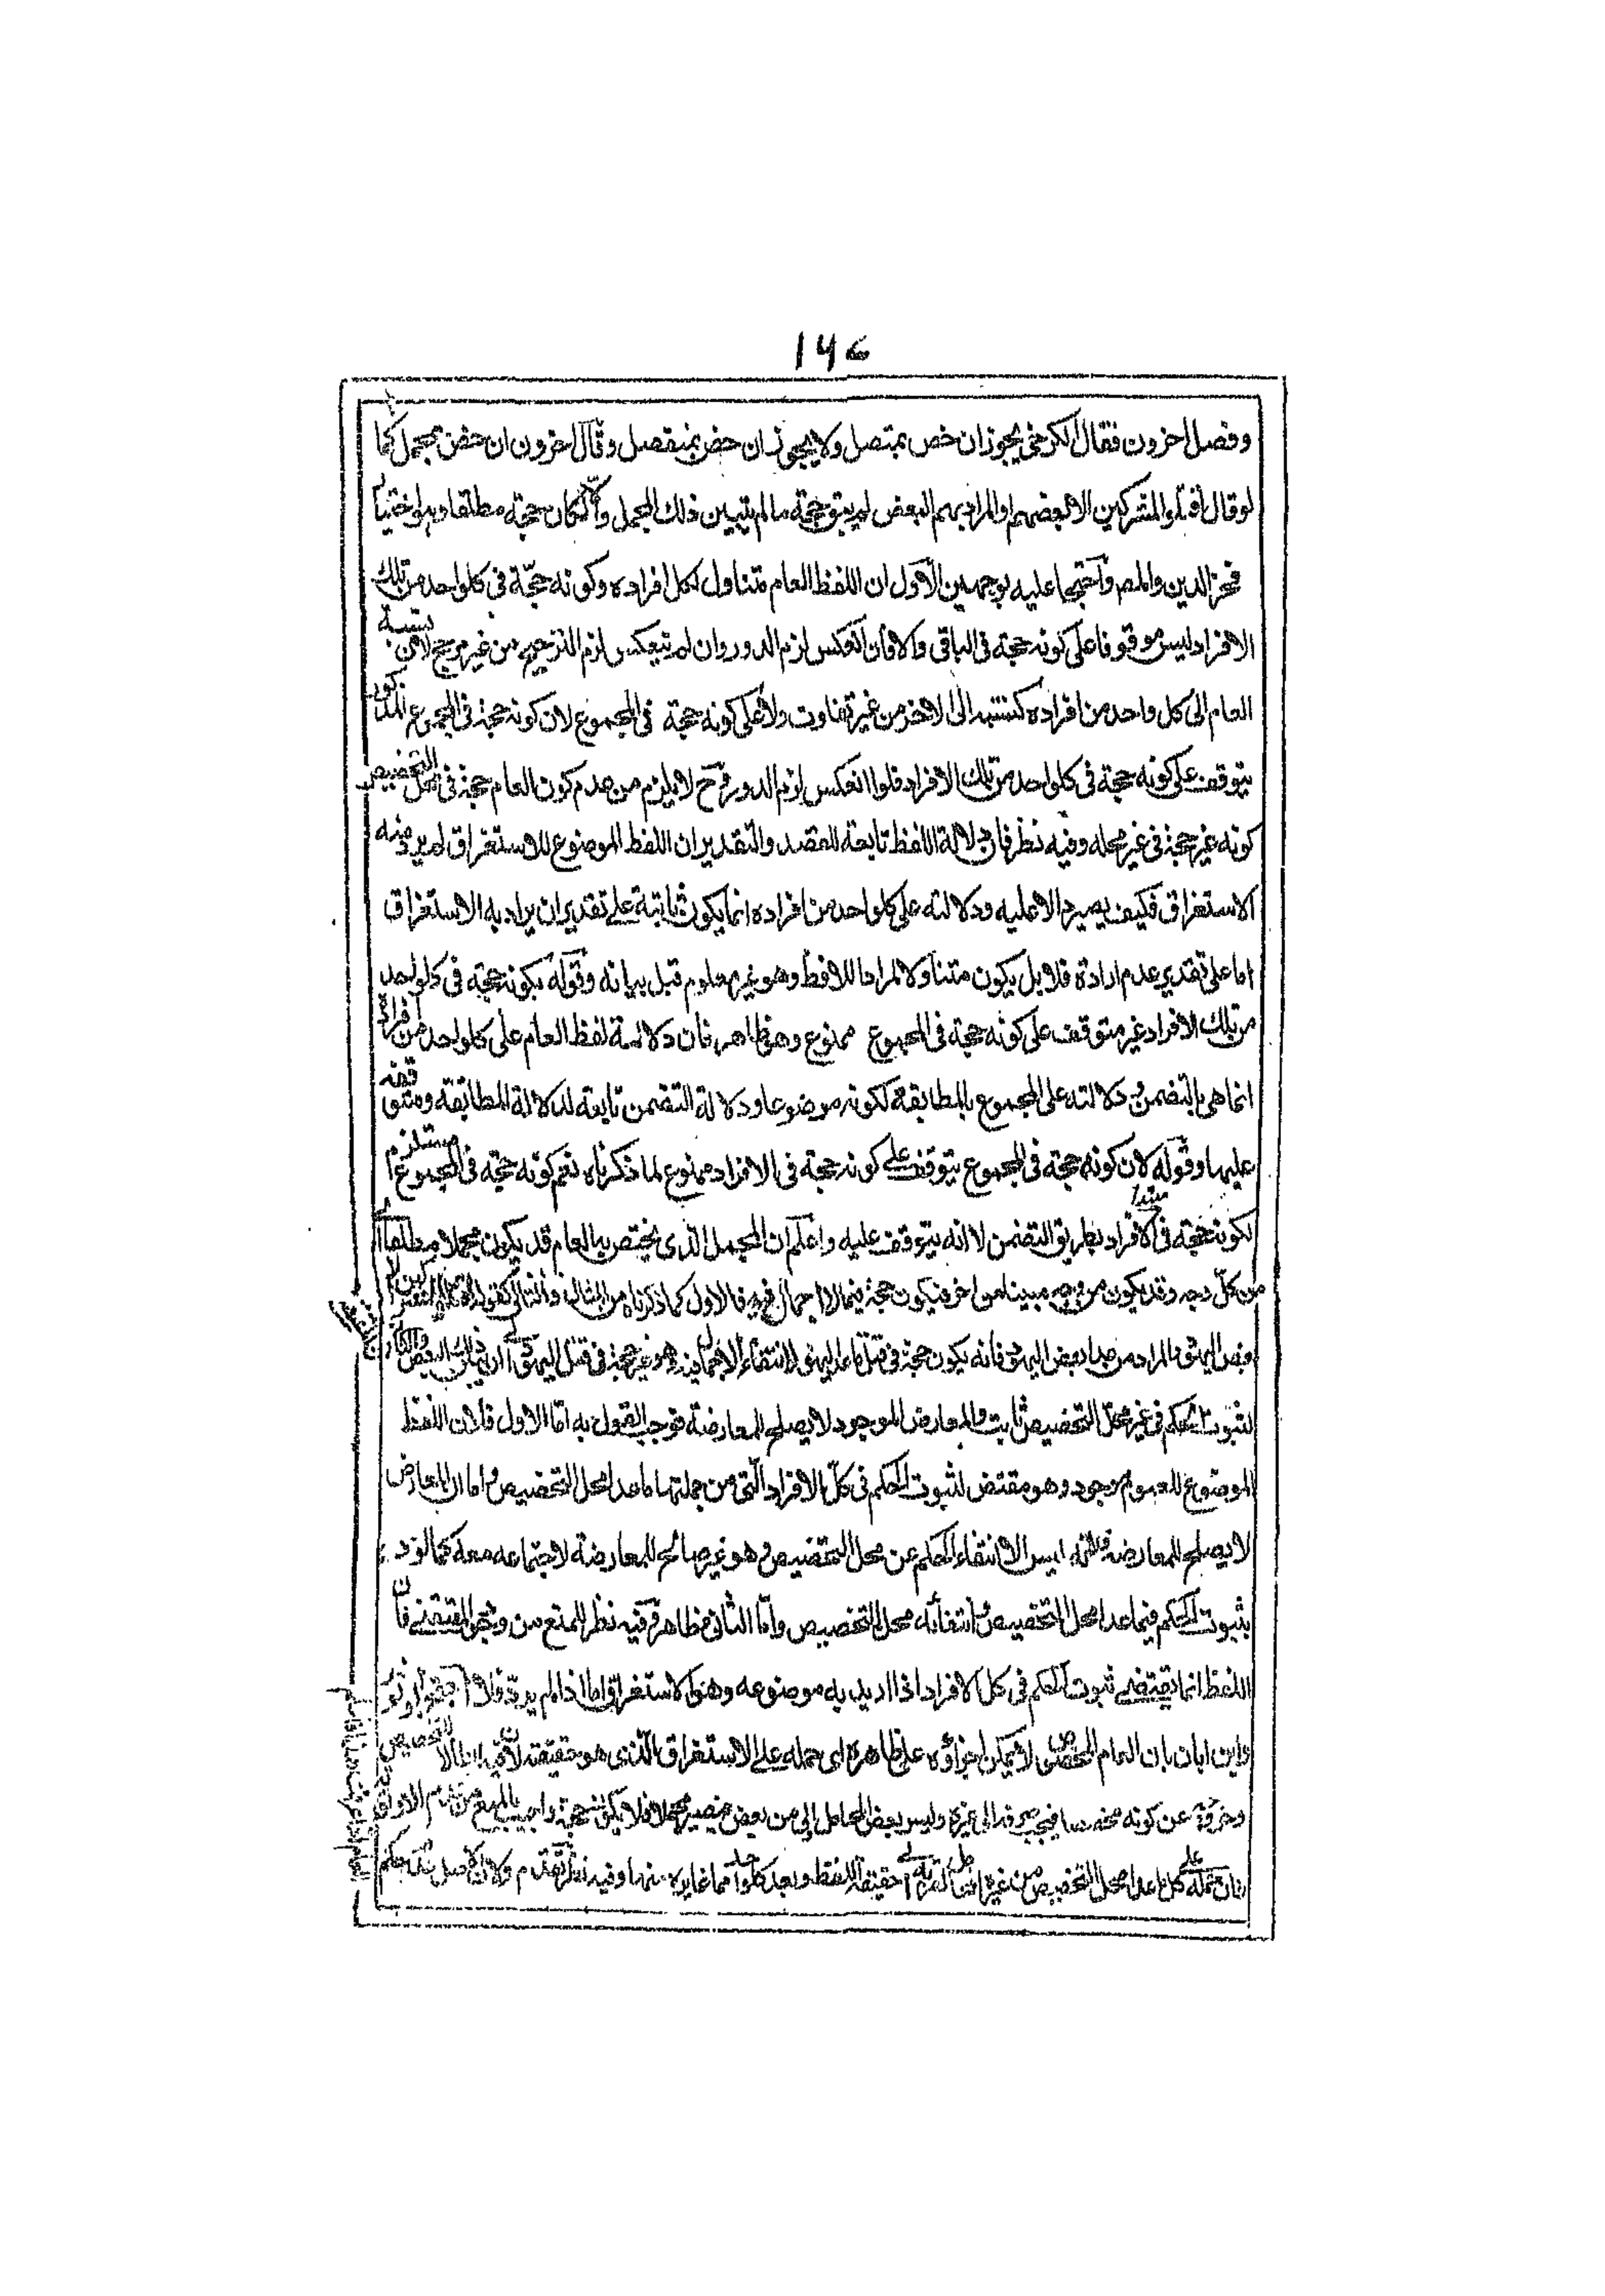 ١٤٧
وفصل اخرون فقال الكرخي يجوز ان خص بمتصل ولا يجوز ان خص بمنفصل وقال اخرون ان خص بمجمل كما
لو قال اقتلوا المشركين الا بعضهم او المراد بهم البعض لم يبق حجة ما لم يتبين ذلك المجمل والا كان حجة مطلقا وهو اختيار
فخر الدين والمص واحتجا عليه بوجهين الاول ان اللفظ العام متناول لكل افراده وكونه حجة في كل واحد من تلك
الافراد ليس موقوفا على كونه حجة في الباقي والا فان انعكس لزم الدور وان لم ينعكس لزم الترجيح من غير مرجح لان نسبة
العام الى كل واحد من افراده كنسبته الى الاخر من غير تفاوت ولا على كونه حجة في المجموع لان كونه حجة في المجموع المذكور
يتوقف على كونه حجة في كل واحد من تلك الافراد فلو انعكس لزم الدور وح لا يلزم من عدم كون العام حجة في محل التخصيص
كونه غير حجة في غير محله وفيه نظر فان دلالة اللفظ تابعة للقصد والتقدير ان اللفظ الموضوع للاستغراق لم يرد منه
الاستغراق فكيف يصير دالا عليه ودلالته على كل واحد من افراده انما يكون ثابتة على تقدير ان يراد به الاستغراق
اما على تقدير عدم ارادته فلا بل يكون متناولا لمراد اللافظ وهو غير معلوم قبل بيانه وقوله بكونه حجة في كل واحد
من تلك الافراد غير متوقف على كونه حجة في المجموع ممنوع وهو ظاهر فان دلالة لفظ العام على كل واحد من افراده
انما هي بالتضمن ودلالته على المجموع بالمطابقة لكونه موضوعا ودلالة التضمن تابعة لدلالة المطابقة ومتوقفة
عليها وقوله لان كونه حجة في المجموع يتوقف على كونه حجة في الافراد ممنوع لما ذكرناه نعم كونه حجة في المجموع مستلزم
لكونه حجة في الافراد بطريق التضمن لا انه يتوقف عليه واعلم ان المجمل الذي يختص به العام قد يكون مجملا مطلقا اي
من كل وجه وقد يكون من وجه مبينا من اخر فيكون حجة فيما لا اجمال فيه فالاول كما ذكرناه من المثال والثاني كقوله اقتلوا المشركين الا
بعض اليهود والمراد من هذا بعض اليهود فانه يكون حجة في قتل ما عدا اليهود لانتفاء الاجمال فيه وهو غير حجة في قتل اليهود
لثبوت الحكم في غير محل التخصيص ثابت والمعارض الموجود لا يصلح للمعارضة فوجب القول به اما الاول فلان اللفظ
الموضوع للعموم موجود وهو مقتض لثبوت الحكم في كل الافراد التي من جملتها ما عدا محل التخصيص واما ان المعارض
لا يصلح للمعارضة فلانه ليس الا انتفاء الحكم عن محل التخصيص وهو غير صالح للمعارضة لاجتماعه معه كما لو ورد
بثبوت الحكم فيما عدا محل التخصيص وانتفائه محل التخصيص واما الثاني فظاهر وفيه نظر للمنع من وجود المقتضي فان
اللفظ انما يقتضي ثبوت الحكم في كل الافراد اذا اريد به موضوعه وهو الاستغراق اما اذا لم يرد فلا احتج ابو ثور
وابن ابان بان العام المخصص لا يمكن اجراؤه على ظاهره اي حمله على الاستغراق الذي هو حقيقته
عن كونه مخصصا فيجب صرفه الى غيره وليس بعض المحامل اولى من بعض فيصير مجملا فلا يكون حجة واجيب بالمنع من عدم الاولوية
فان حمله على كل ما عدا محل التخصيص من غيره حقيقة اللفظ وبعد كل واحد مما غايره منها وفيه نظر تقدم